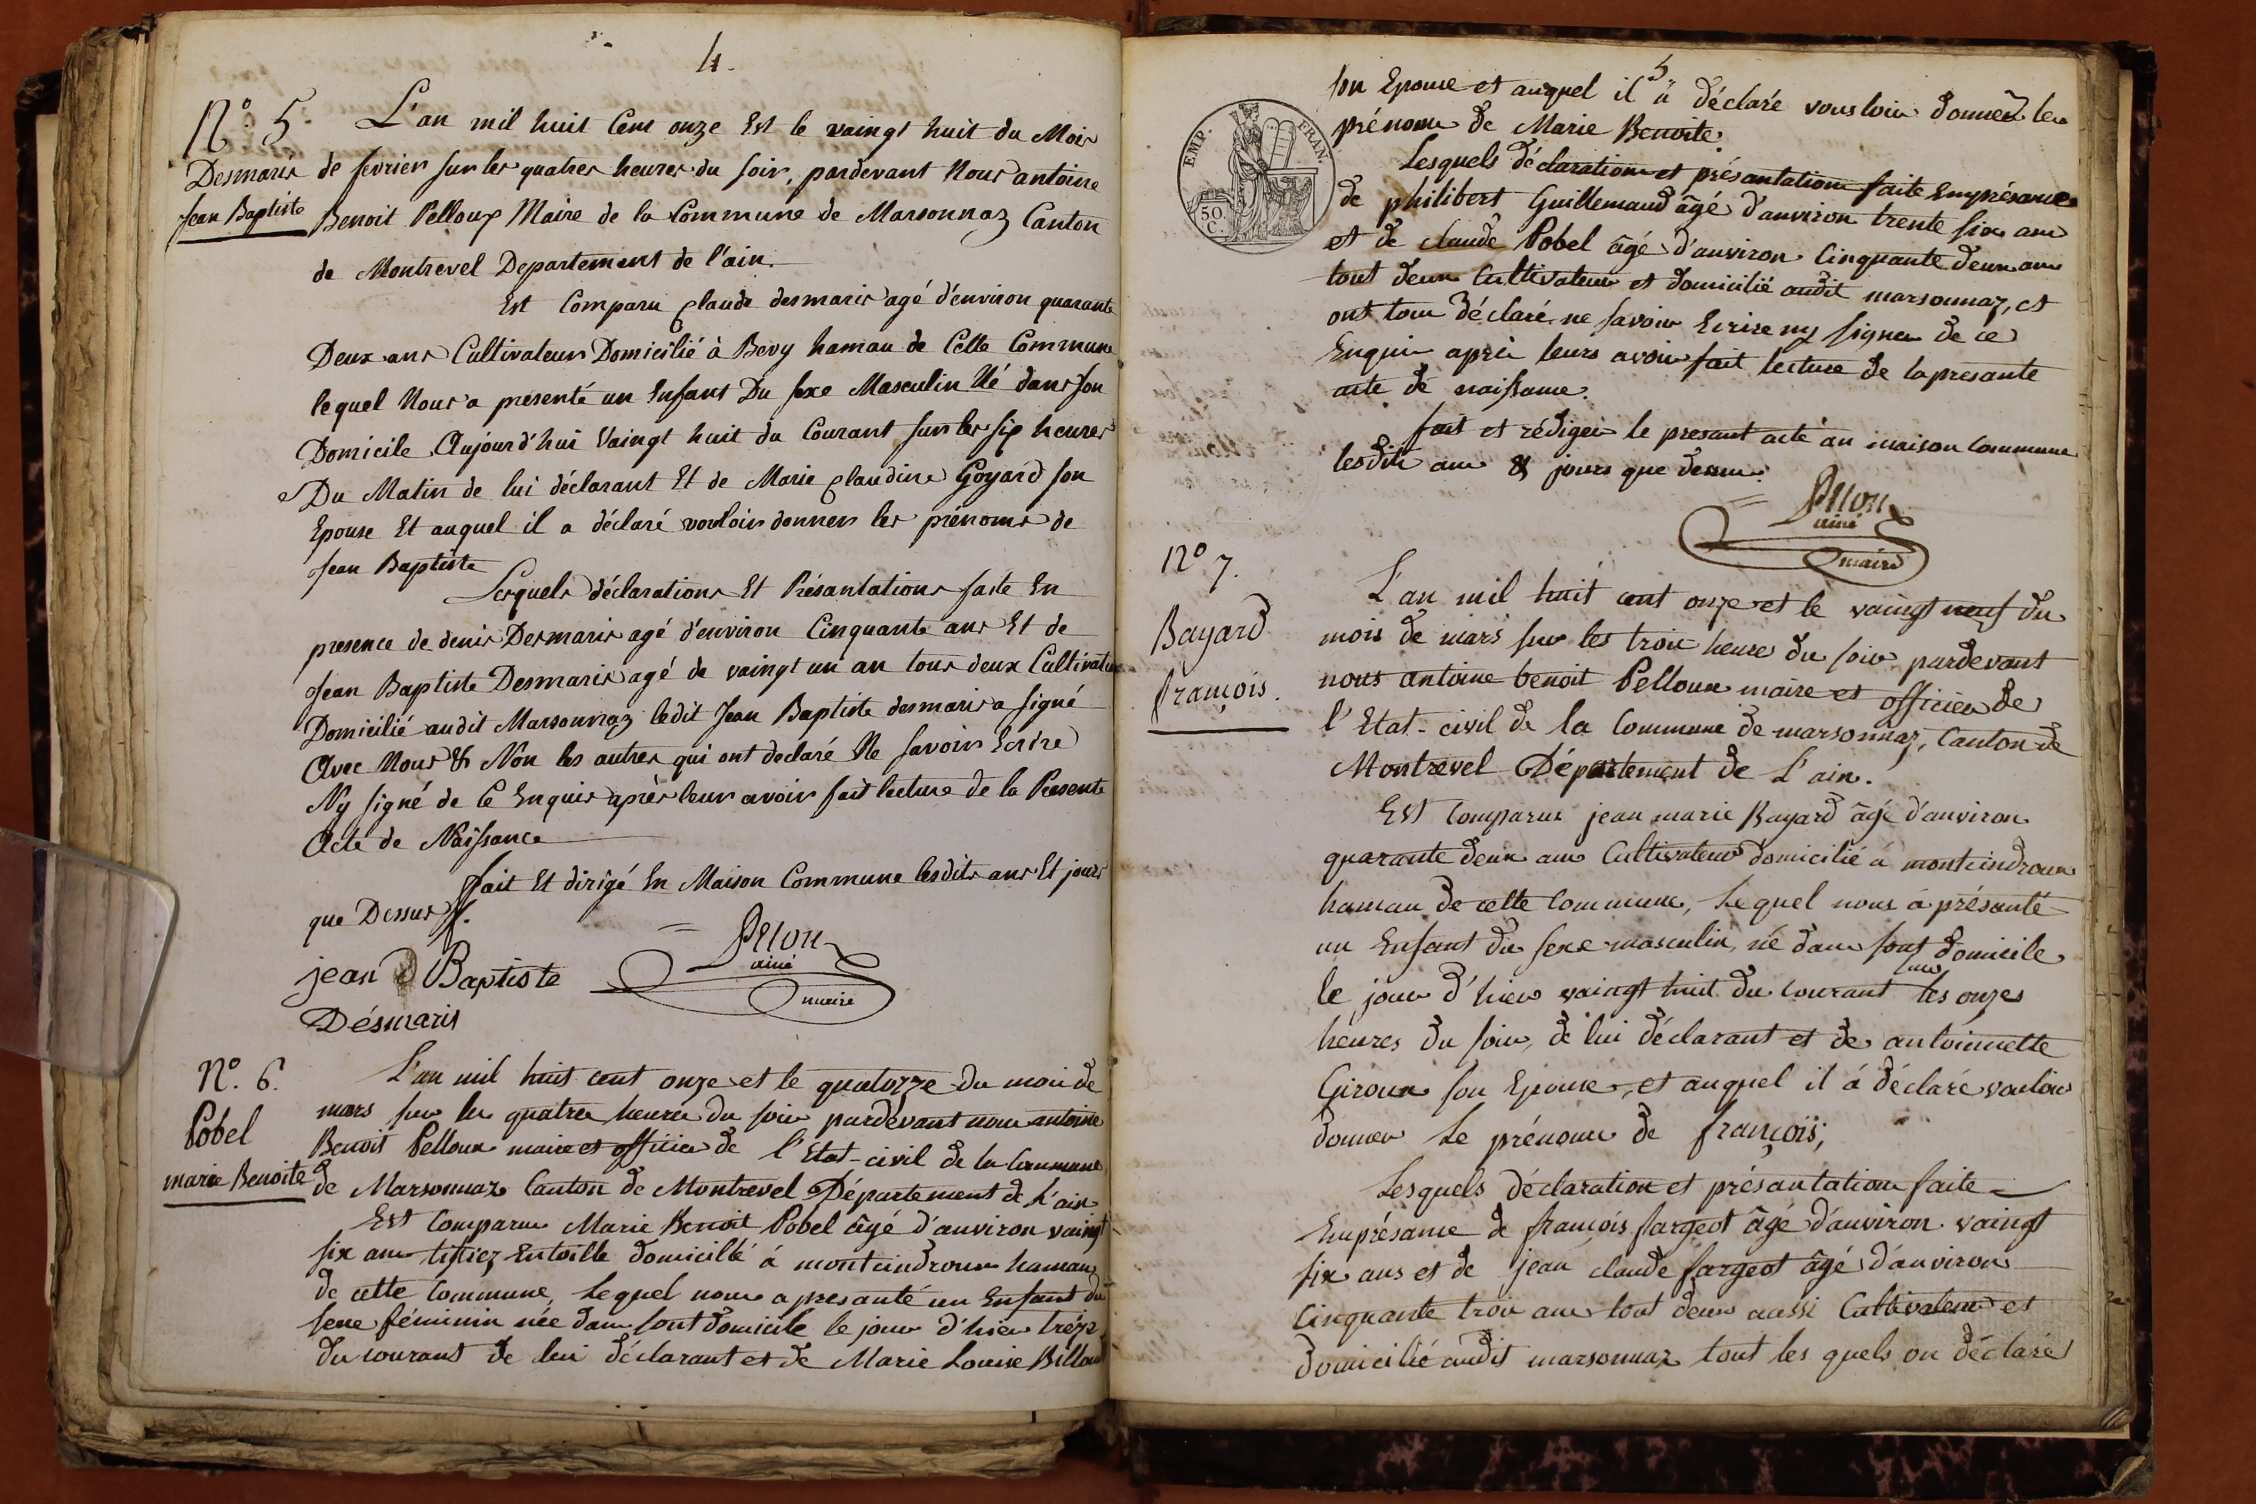 4.
N.° 5.
Desmaris
Jean Baptiste
L'an mil huit Cent onze Est le vaingt huit du Mois
de fevrier sur les quatres heures du soir, pardevant Nous antoine
Benoit Pelloux Maire de la Commune de Marsonnaz Canton
de Montrevel Departement de l'ain.
Est Comparu Claude desmaris agé d'environ quarante
Deux ans Cultivateur Domicilié à Bevy hamau de Cette Commune
lequel Nous a présenté un Enfant Du sexe Masculin Né dans son
Domicile Aujourd'hui Vaingt huit du Courant sur les six heures
Du Matin de lui déclarant Et de Marie Claudine Goyard son
Epouse Et auquel il a déclaré vouloir donner les prénoms de
Jean Baptiste
Lesquels déclarations Et Présantations faite En
presence de denis Desmaris agé d'environ Cinquante ans Et de
Jean Baptiste Desmaris agé de vaingt un an tous deux Cultivateur
Domicilié audit Marsonnaz ledit Jean Baptiste desmaris a signé
Avec Nous & Non les autres qui ont declaré Ne savoir Ecrire
Ny signé de Ce Enquis après leur avoir fait lecture de la Presente
Acte de Naissance
Fait Et dirigé En Maison Commune lesdits ans Et jours
que Dessus
jean Baptiste
Désmaris
ainé
maire
N°. 6.
Pobel
marie Benoite
L'an mil huit cent onze et le quatorze du moi de
mars sur les quatres heures du soir pardevant nous antoine
Benoit Pelloux maire et officier de l'Etat-civil de la Commune
de Marsonnaz Canton de Montrevel Département de L'ain
Est Comparu Marie Benoit Pobel âgé d'anviron vaingt
six ans tissiez Entoille domicillé à montcindroux hamau
de cette Commune, Lequel nous a presanté un Enfant du
sexe féminin née dans sont domicile le jour d'hier treize
du courant de lui déclarant et de Marie Louise Billoud
5.
EMP. FRAN.
50 C.
son Epouse et auquel il a déclaré vousloir donnez les
prénoms de Marie Benoite.
Lesquels déclaration et présantation faite Emprésance
de philibert Guillemaud âgé d'anviron trente six ans
et de claude Pobel âgé d'anviron Cinquante deux ans
tout deux Cultivateur et domicilié audit marsonnaz, et
ont tous déclaré ne savoir Ecrire ny signer de ce
Enquis après leurs avoir fait lecture de la presante
acte de naissance.
fait et rédigei le presant acte an maison Commune
lesdits ans & jours que dessus.
ainé
maire
N° 7.
Bayard
françois.
L'an mil huit cent onze et le vaingt neuf du
mois de mars sur les trois heure du soir pardevant
nous antoine benoit Pelloux maire et officier de
l'Etat-civil de la Commune de marsonnaz, Canton de
Montrevel Département de L'ain.
Est Comparus jean marie Bayard âgé d'anviron
quarante deux ans Cultivateur domicilié à montcindroux
hamau de cette Commune, Lequel nous à présanté
un Enfant du sexe masculin, né dans sont domicile
le jour d'hier vaingt huit du courant sur les onze
heures du soir, de lui déclarant et de antoinnette
Giroux son Epouse, et auquel il à déclaré vouloir
donner Le prénoms de françois;
Lesquels déclaration et présantation faite
Emprésance de françois fargeot âgé d'anviron vaingt
six ans et de jean claude fargeot âgé d'anviron
Cinquante trois ans tout deux aussi Cultivateur et
domicilié audit marsonnaz tout les quels on déclaré